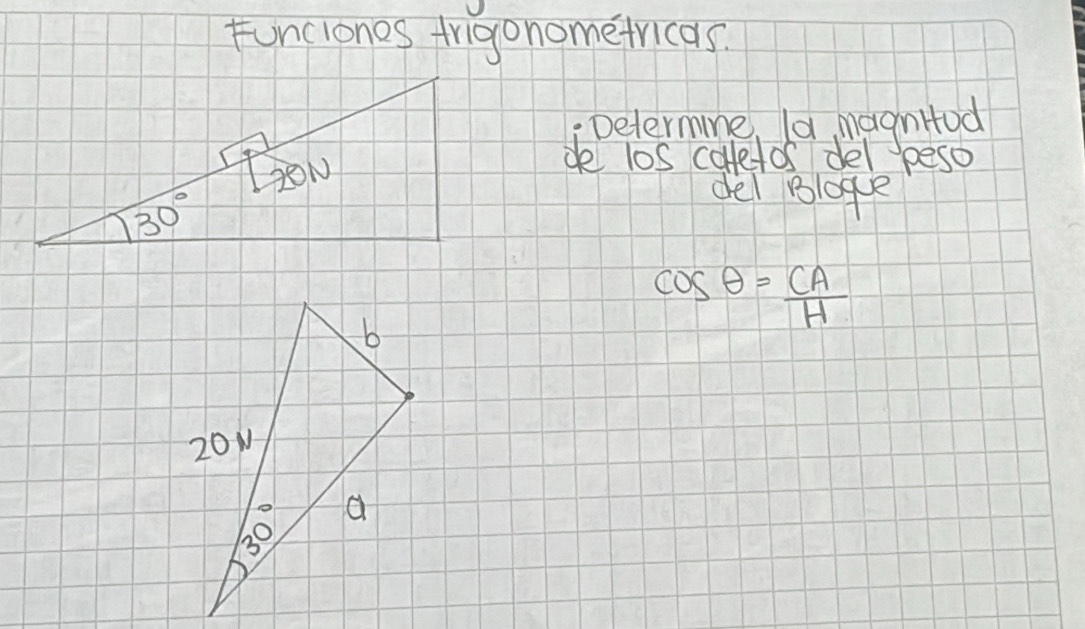 Funciones trigonométricas.
20N
30°
• Determine la magnitud
de los catetos del peso
del Bloque
cos θ = CA
H
b
20 N
30°
a